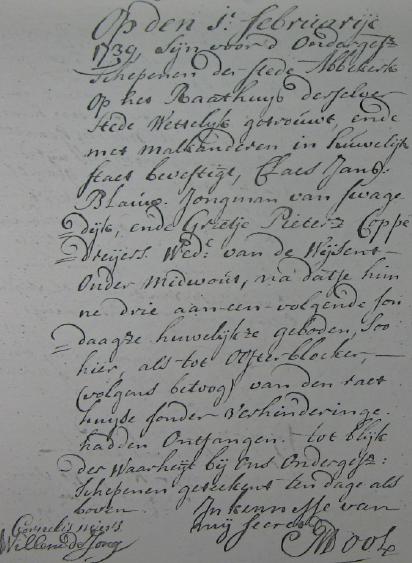 Op den 1.e februarije
1739, Sijn voor d' Ondergesz
Schepenen der stede Abbekerk
Op het Raathuijs deselver
stede Wettelijk getrouwt, ende
met malkanderen in huwelijk
staet bevestigt, Claes Jansz:
Blauw. Jongman van Swage
=dijk, ende Grietje Pieters Coppe
=dreijers. Wed.e van de Weijsent
Onder Medwout, na datse hun
ne drie aaneen-volgende son
=daagze huwelijkze geboden, Soo
hier, als tot Oosterblocker,
(volgens betoog) van den raet
huijse sonder verhinderinge.
hadden Ontfangen. tot blijk
der Waarheijt bij Ons Ondergesz:
Schepenen geteekent ten dage als
boven. In kennesse van
Cornelis mij secret
Willem de Jong Mool